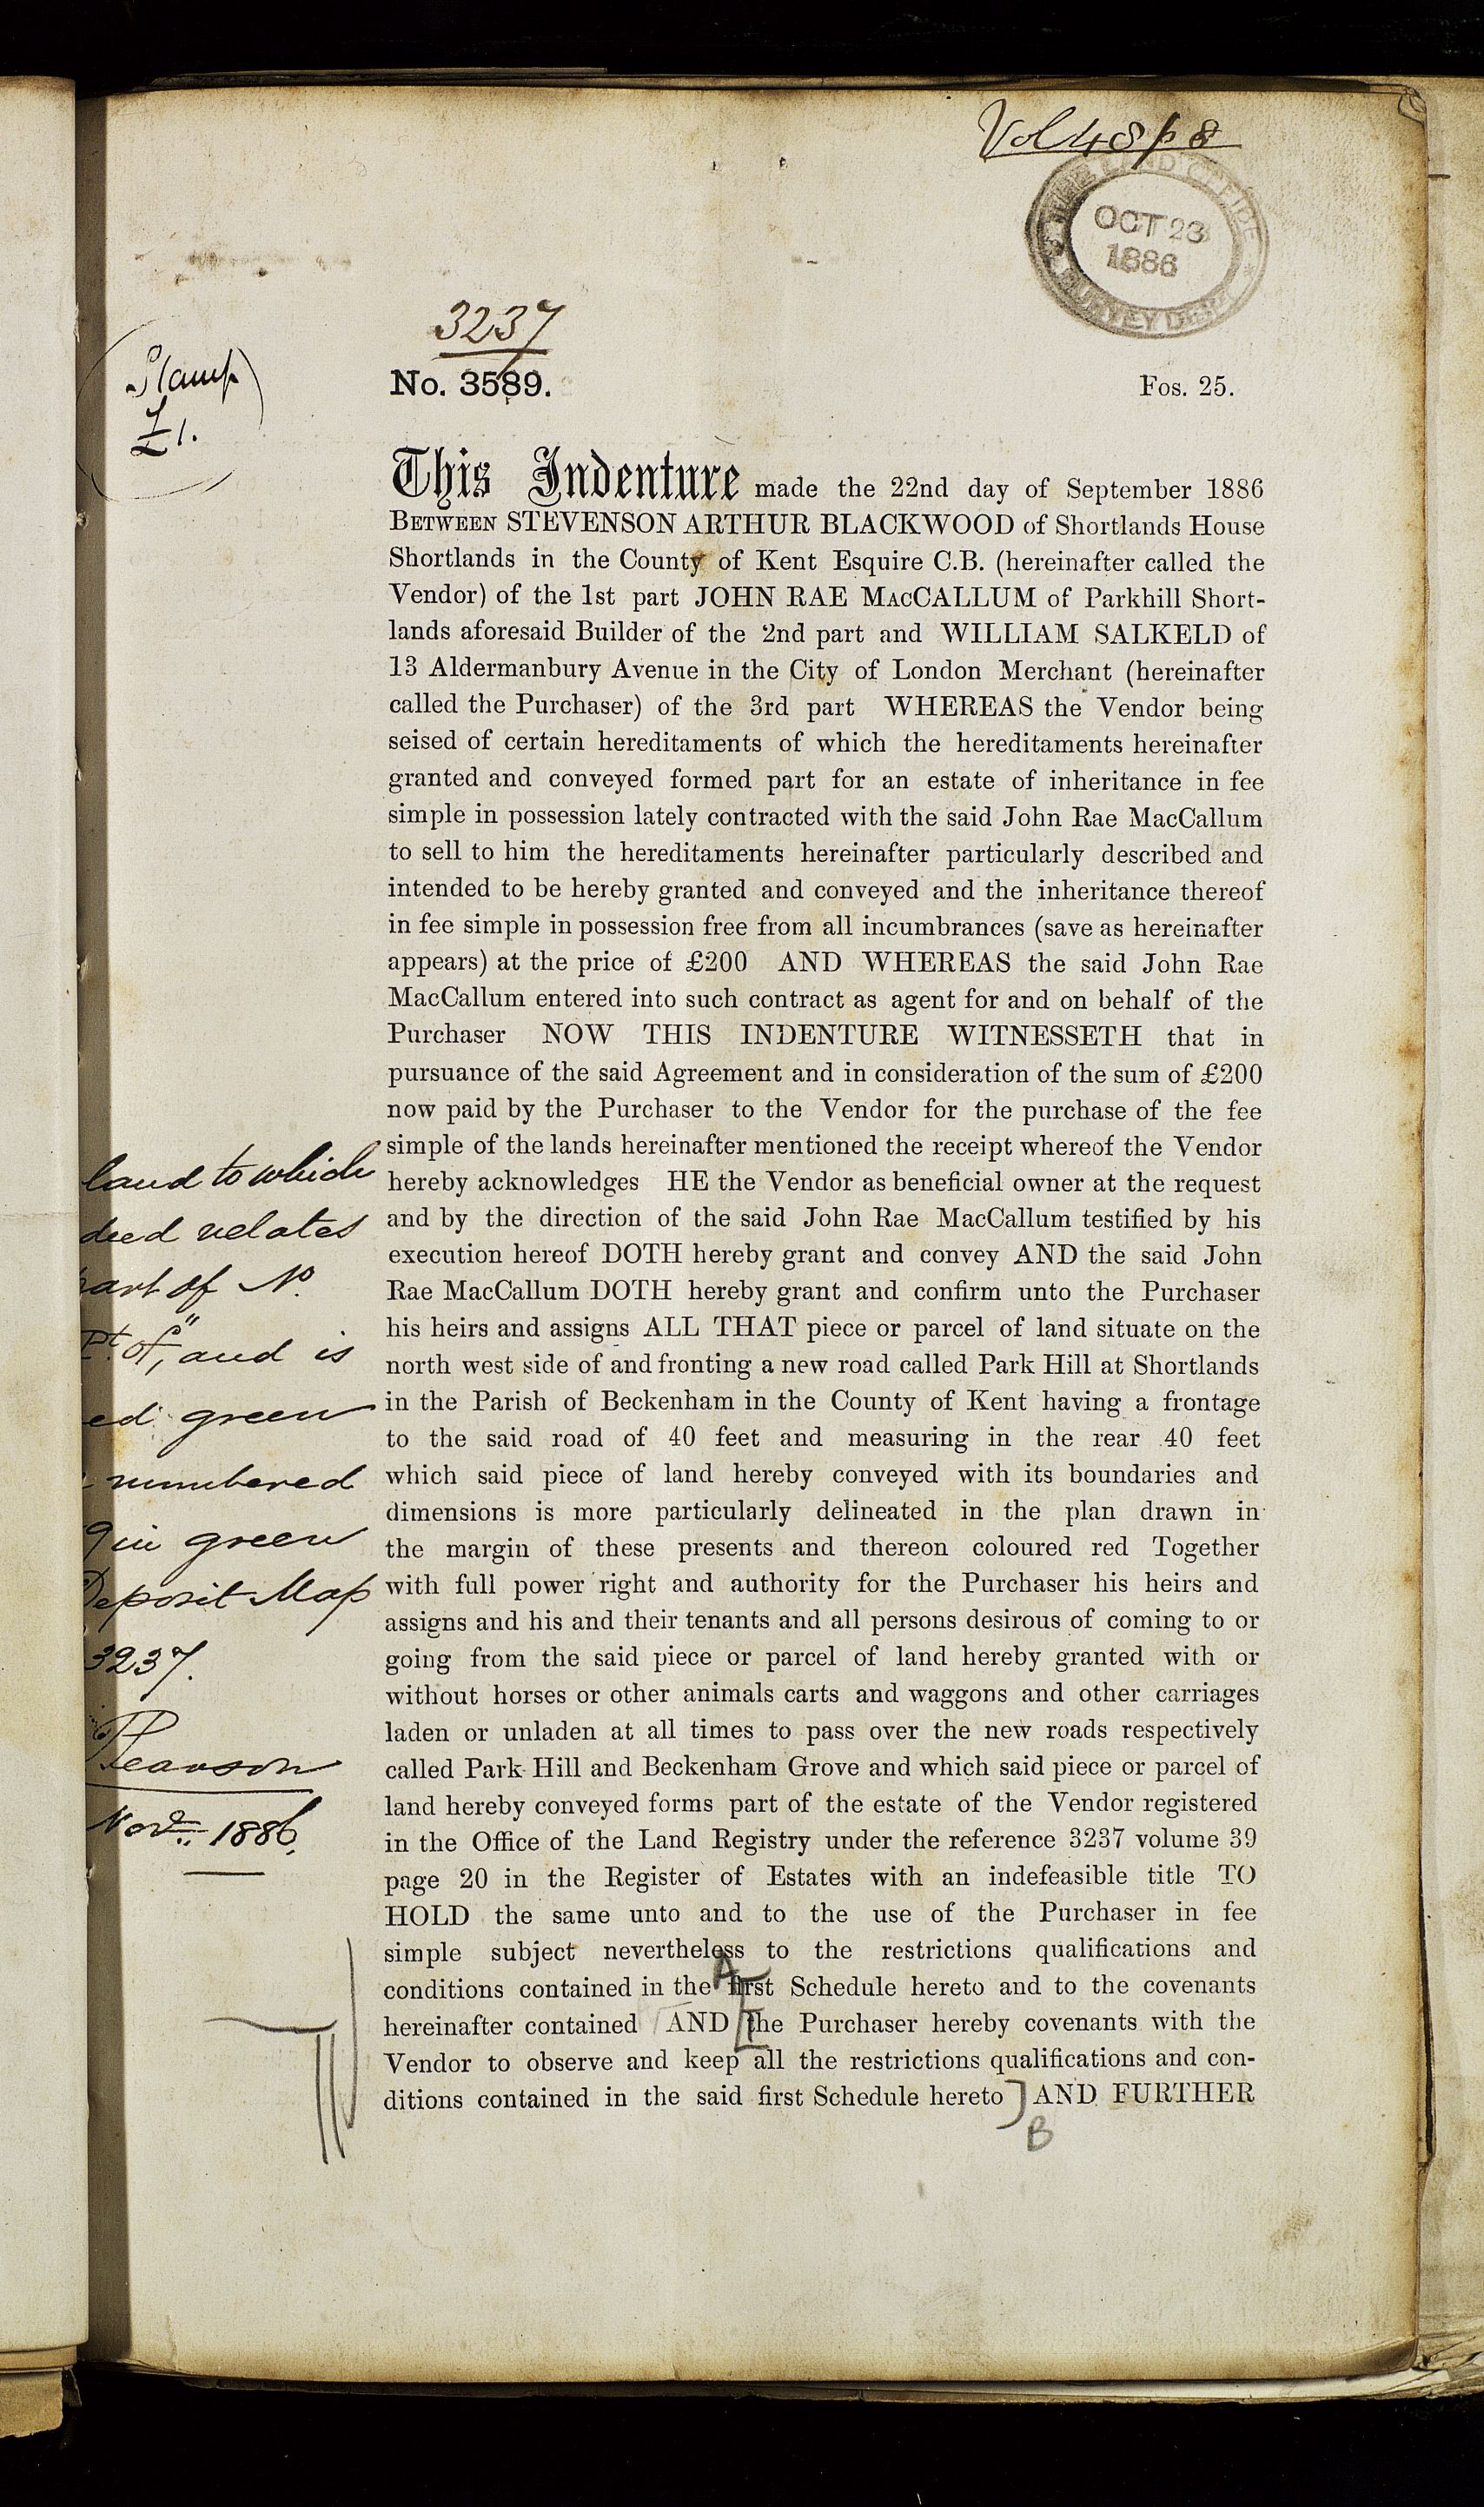 Vol 48 p 8
LAND OFFICE
OCT 23
1886
SURVEY DEPT
3237
No. 3589.
Fos. 25.
Stamp
£1.
This Indenture made the 22nd day of September 1886
BETWEEN STEVENSON ARTHUR BLACKWOOD of Shortlands House
Shortlands in the County of Kent Esquire C.B. (hereinafter called the
Vendor) of the 1st part JOHN RAE MACCALLUM of Parkhill Short-
lands aforesaid Builder of the 2nd part and WILLIAM SALKELD of
13 Aldermanbury Avenue in the City of London Merchant (hereinafter
called the Purchaser) of the 3rd part WHEREAS the Vendor being
seised of certain hereditaments of which the hereditaments hereinafter
granted and conveyed formed part for an estate of inheritance in fee
simple in possession lately contracted with the said John Rae MacCallum
to sell to him the hereditaments hereinafter particularly described and
intended to be hereby granted and conveyed and the inheritance thereof
in fee simple in possession free from all incumbrances (save as hereinafter
appears) at the price of £200 AND WHEREAS the said John Rae
MacCallum entered into such contract as agent for and on behalf of the
Purchaser NOW THIS INDENTURE WITNESSETH that in
pursuance of the said Agreement and in consideration of the sum of £200
now paid by the Purchaser to the Vendor for the purchase of the fee
simple of the lands hereinafter mentioned the receipt whereof the Vendor
hereby acknowledges HE the Vendor as beneficial owner at the request
and by the direction of the said John Rae MacCallum testified by his
execution hereof DOTH hereby grant and convey AND the said John
Rae MacCallum DOTH hereby grant and confirm unto the Purchaser
his heirs and assigns ALL THAT piece or parcel of land situate on the
north west side of and fronting a new road called Park Hill at Shortlands
in the Parish of Beckenham in the County of Kent having a frontage
to the said road of 40 feet and measuring in the rear 40 feet
which said piece of land hereby conveyed with its boundaries and
dimensions is more particularly delineated in the plan drawn in
the margin of these presents and thereon coloured red Together
with full power right and authority for the Purchaser his heirs and
assigns and his and their tenants and all persons desirous of coming to or
going from the said piece or parcel of land hereby granted with or
without horses or other animals carts and waggons and other carriages
laden or unladen at all times to pass over the new roads respectively
called Park Hill and Beckenham Grove and which said piece or parcel of
land hereby conveyed forms part of the estate of the Vendor registered
in the Office of the Land Registry under the reference 3237 volume 39
page 20 in the Register of Estates with an indefeasible title TO
HOLD the same unto and to the use of the Purchaser in fee
simple subject nevertheless to the restrictions qualifications and
A
conditions contained in the first Schedule hereto and to the covenants
hereinafter contained AND [the Purchaser hereby covenants with the
Vendor to observe and keep all the restrictions qualifications and con-
ditions contained in the said first Schedule hereto] AND FURTHER
B
land to which
deed relates
part of No.
Pt. of," and is
ed green
numbered
9 in green
Deposit Map
3237.
Pearson
Novr. 1886.